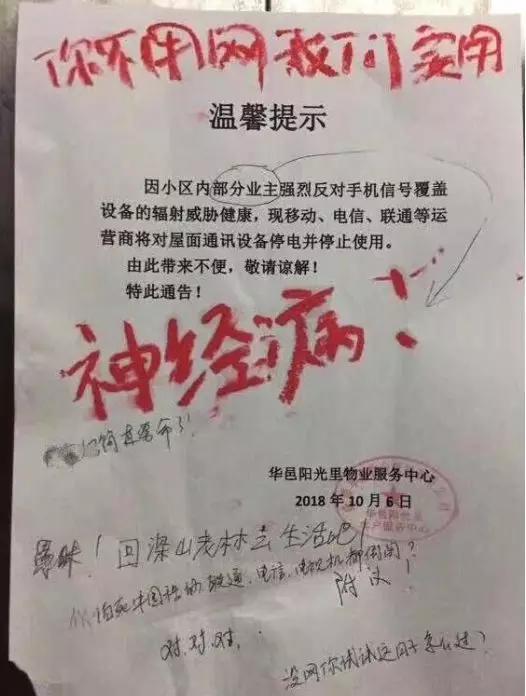 你不用网我们实用
温馨提示
因小区内部分业主强烈反对手机信号覆盖
设备的辐射威胁健康,现移动、电信、联通等运
营商将对屋面通讯设备停电并停止使用。
由此带来不便,敬请谅解!
特此通告!
神经病!
华邑阳光里物业服务中心
2018 年 10 月 6 日
华邑阳光里
客户服务中心
愚昧!回深山老林去生活吧!
怕死 中国 联通、电信、电视机都倒闭?
附议!
对.对.对.
没网你试试这日子怎么过?